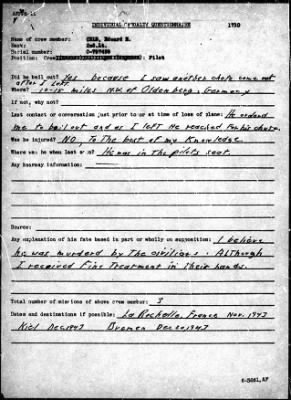 INDIVIDUAL CASUALTY QUESTIONNAIRE 1710
Name of crew member: Edward E.
Rank: 2nd.Lt.
Serial number:
Position: Crew Pilot
Did he bail out? Yes because I saw another chute come out
after I left.
Where? 10-15 miles N.W. of Oldenberg, Germany
If not, why not?
Last contact or conversation just prior to or at time of loss of plane: He ordered
me to bail out and as I left He reached for his chute.
Was he injured? NO, To The best of my Knowledge
Where was he when last seen? He was in The pilots seat.
Any hearsay information:
Source:
Any explanation of his fate based in part or wholly on supposition: I believe
he was murderd by The civilians. Although
I received Fine Treatment in Their hands.
Total number of missions of above crew member: 3
Dates and destinations if possible: La Rochelle, France Nov. 1943
Kiel Dec, 1943 Bremen Dec 20, 1943